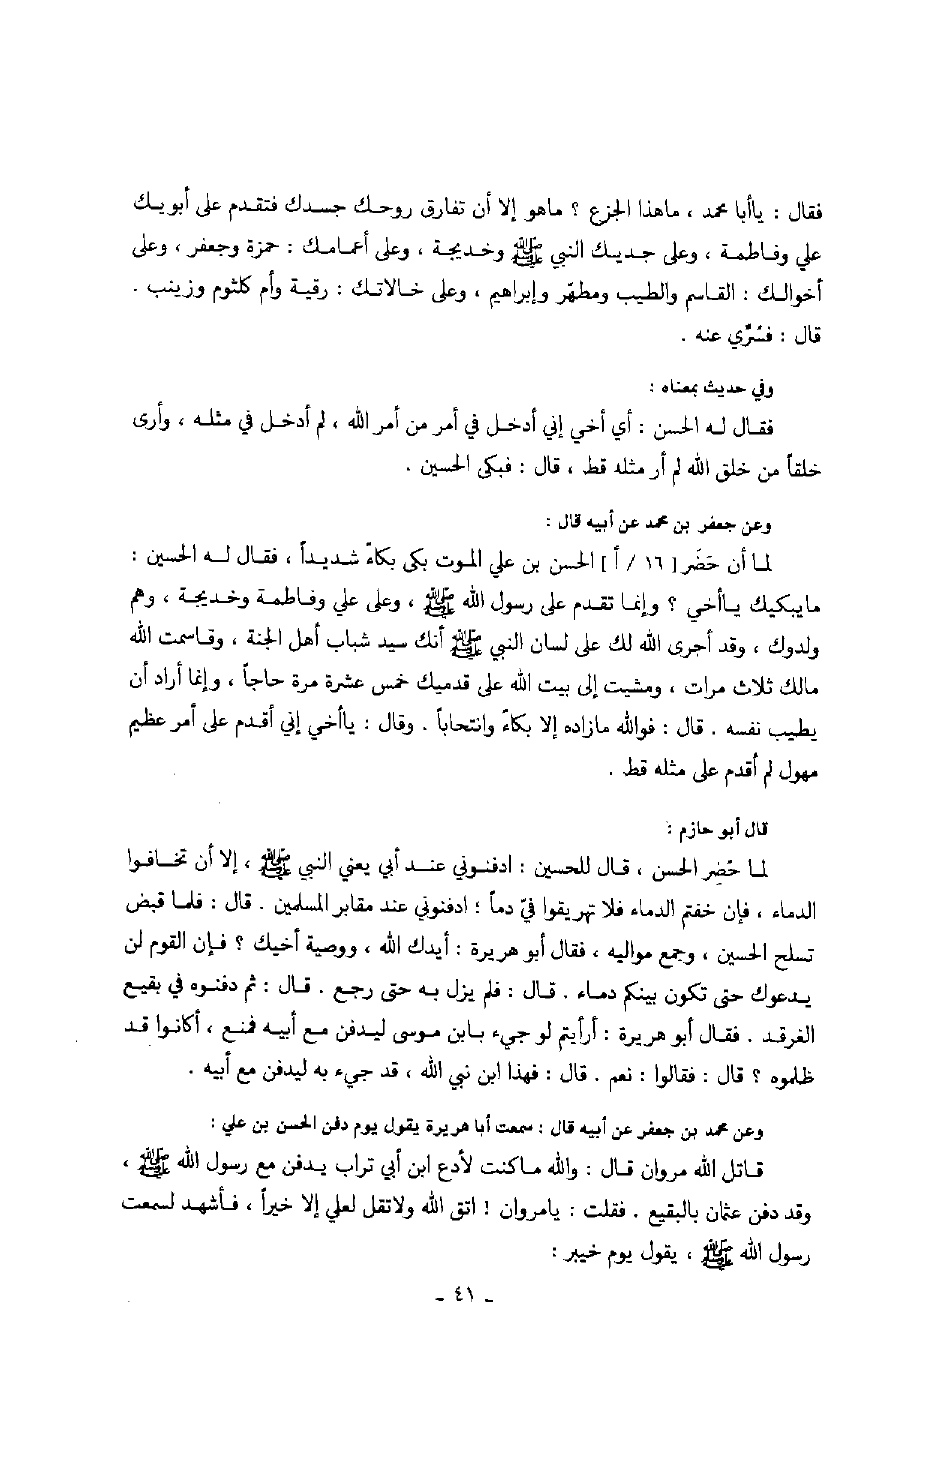 فقال : ياأبا محمد ، ماهذا الجزع ؟ ماهو إلا أن تفارق روحك جسدك فتقدم على أبويك
علي وفاطمة ، وعلى جديك النبي ﷺ وخديجة ، وعلى أعمامك : حمزة وجعفر ، وعلى
أخوالك : القاسم والطيب ومطهّر وإبراهيم ، وعلى خالاتك : رقية وأم كلثوم وزينب .
قال : فسُرِّي عنه .
وفي حديث بمعناه :
فقال له الحسن : أي أخي إني أدخل في أمر من أمر الله ، لم أدخل في مثله ، وأرى
خلقاً من خلق الله لم أر مثله قط ، قال : فبكى الحسين .
وعن جعفر بن محمد عن أبيه قال :
لما أن حَضَر [ ١٦ / أ ] الحسن بن علي الموت بكى بكاءً شديداً ، فقال له الحسين :
مايبكيك ياأخي ؟ وإنما تقدم على رسول الله ﷺ ، وعلى علي وفاطمة وخديجة ، وهم
ولدوك ، وقد أجرى الله لك على لسان النبي ﷺ أنك سيد شباب أهل الجنة ، وقاسمت الله
مالك ثلاث مرات ، ومشيت إلى بيت الله على قدميك خمس عشرة مرة حاجاً ، وإنما أراد أن
يطيب نفسه . قال : فوالله مازاده إلا بكاءً وانتحاباً . وقال : ياأخي إني أقدم على أمر عظيم
مهول لم أقدم على مثله قط .
قال أبو حازم :
لما حُضِر الحسن ، قال للحسين : ادفنوني عند أبي يعني النبي ﷺ ، إلا أن تخافوا
الدماء ، فإن خفتم الدماء فلا تهريقوا فيّ دماً ؛ ادفنوني عند مقابر المسلمين . قال : فلما قبض
تسلح الحسين ، وجمع مواليه ، فقال أبو هريرة : أيدك الله ، ووصية أخيك ؟ فإن القوم لن
يدعوك حتى تكون بينكم دماء . قال : فلم يزل به حتى رجع . قال : ثم دفنوه في بقيع
الغرقد . فقال أبو هريرة : أرأيتم لو جيء بابن موسى ليدفن مع أبيه فمنع ، أكانوا قد
ظلموه ؟ قال : فقالوا : نعم . قال : فهذا ابن نبي الله ، قد جيء به ليدفن مع أبيه .
وعن محمد بن جعفر عن أبيه قال : سمعت أبا هريرة يقول يوم دفن الحسن بن علي :
قاتل الله مروان قال : والله ماكنت لأدع ابن أبي تراب يدفن مع رسول الله ﷺ ،
وقد دفن عثمان بالبقيع . فقلت : يامروان ! اتق الله ولاتقل لعلي إلا خيراً ، فأشهد لسمعت
رسول الله ﷺ ، يقول يوم خيبر :
- ٤١ -